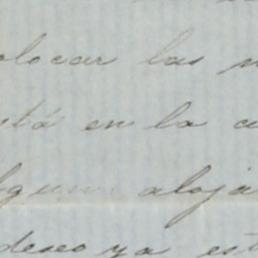 olocar las
está en la
algun aloja
deseo ya est